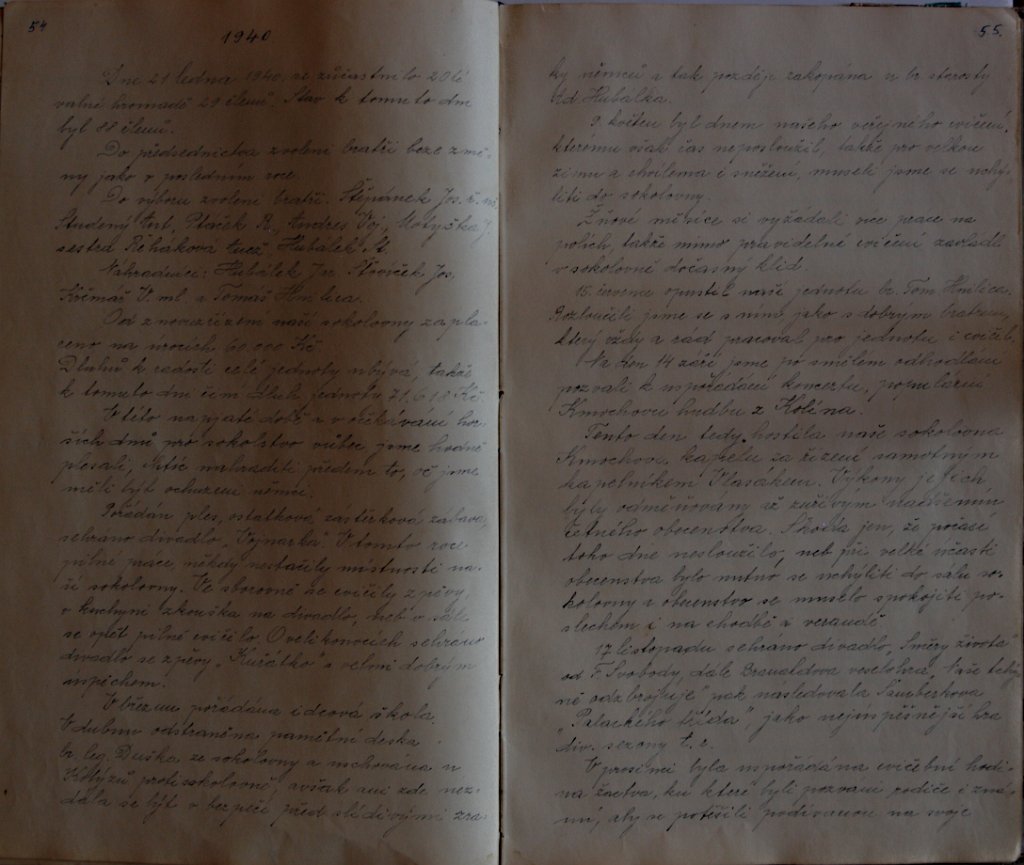 54
1940.
Dne 21 ledna 1940, se zúčastnilo 20té
valné hromadě 29 členů. Stav k tomuto dni
byl 88 členů.
Do předsednictva zvoleni bratři beze změ-
ny jako v posledním roce.
Do výboru zvoleni bratři. Štěpánek Jos. ř. uč.
Studený Ant, Ptáček R., Andres Voj., Motyčka J.
sestra Řeháková Anež. Hubálek St.
Náhradníci: Hubálek Jar. Šťovíček Jos.
Křčmář V. ml. a Tomáš Hmilica.
Od znovuzřízení naší sokolovny zapla-
ceno na úrocích 60.000 Kč
Dluhů k radosti celé jednoty ubývá, takže
k tomuto dni činí dluh jednoty 71.618 Kč.
V této napjaté době a v očekávání hor-
ších dnů pro sokolstvo vůbec jsme hodně
plesali, chtíc nahraditi předem to, oč jsme
měli být ochuzeni němci.
Pořádán ples, ostatková zástěrková zábava,
sehráno divadlo „Vojnarka". V tomto roce
pilné práce, někdy nestačily místnosti na-
ší sokolovny. Ve sborovně se cvičily zpěvy,
v kuchyni zkouška na divadlo, neb v sále
se opět pilně cvičilo. O velikonocích sehráno
divadlo se zpěvy „Kuřátko" s velmi dobrým
úspěchem.
V březnu pořádána ideová škola.
V dubnu odstraněna pamětní deska
br. leg. Duška ze sokolovny a uschována u
Kotyzů proti sokolovně, avšak ani zde nez-
dála se být v bezpečí před slídivými zra-
55.
ky němců a tak později zakopána u br. starosty
Ad. Hubálka.
9. květen byl dnem našeho veřejného cvičení,
kterému však čas neposloužil, takže pro velkou
zimu a chvílema i sněžení, museli jsme se uchý-
liti do sokolovny.
Žňové měsíce si vyžádali více práce na
polích, takže mimo pravidelné cvičení zavládl
v sokolovně dočasný klid.
15. července opustil naši jednotu br. Tom Hmilica.
Rozloučili jsme se s ním, jako s dobrým bratrem,
který vždy a rád pracoval pro jednotu i cvičil.
Na den 14 září jsme po smělém odhodlání
pozvali k uspořádání koncertu, populární
Kmochovu hudbu z Kolína.
Tento den tedy hostila naše sokolovna
Kmochovu kapelu za řízení samotným
kapelníkem Vlasákem. Výkony jejich
byly odměňovány až zuřivým nadšením
četného obecenstva. Škoda jen, že počasí
toho dne nesloužilo, neb při velké účasti
obecenstva bylo nutno se uchýliti do sálu so-
kolovny a obecenstvo se muselo spokojiti po-
slechem i na chodbě a verandě.
17 listopadu sehráno divadlo „Směry života"
od F. Svobody, dále Branaldova veselohra „Naše tchý-
ně odzbrojuje" pak následovala Šamberkova
„Palackého třída", jako nejúspěšnější hra
div. sezony t. r.
V prosinci byla uspořádána cvičební hodi-
na žactva, ku které byli pozváni rodiče i zná-
mí, aby se potěšili podívanou na svoje